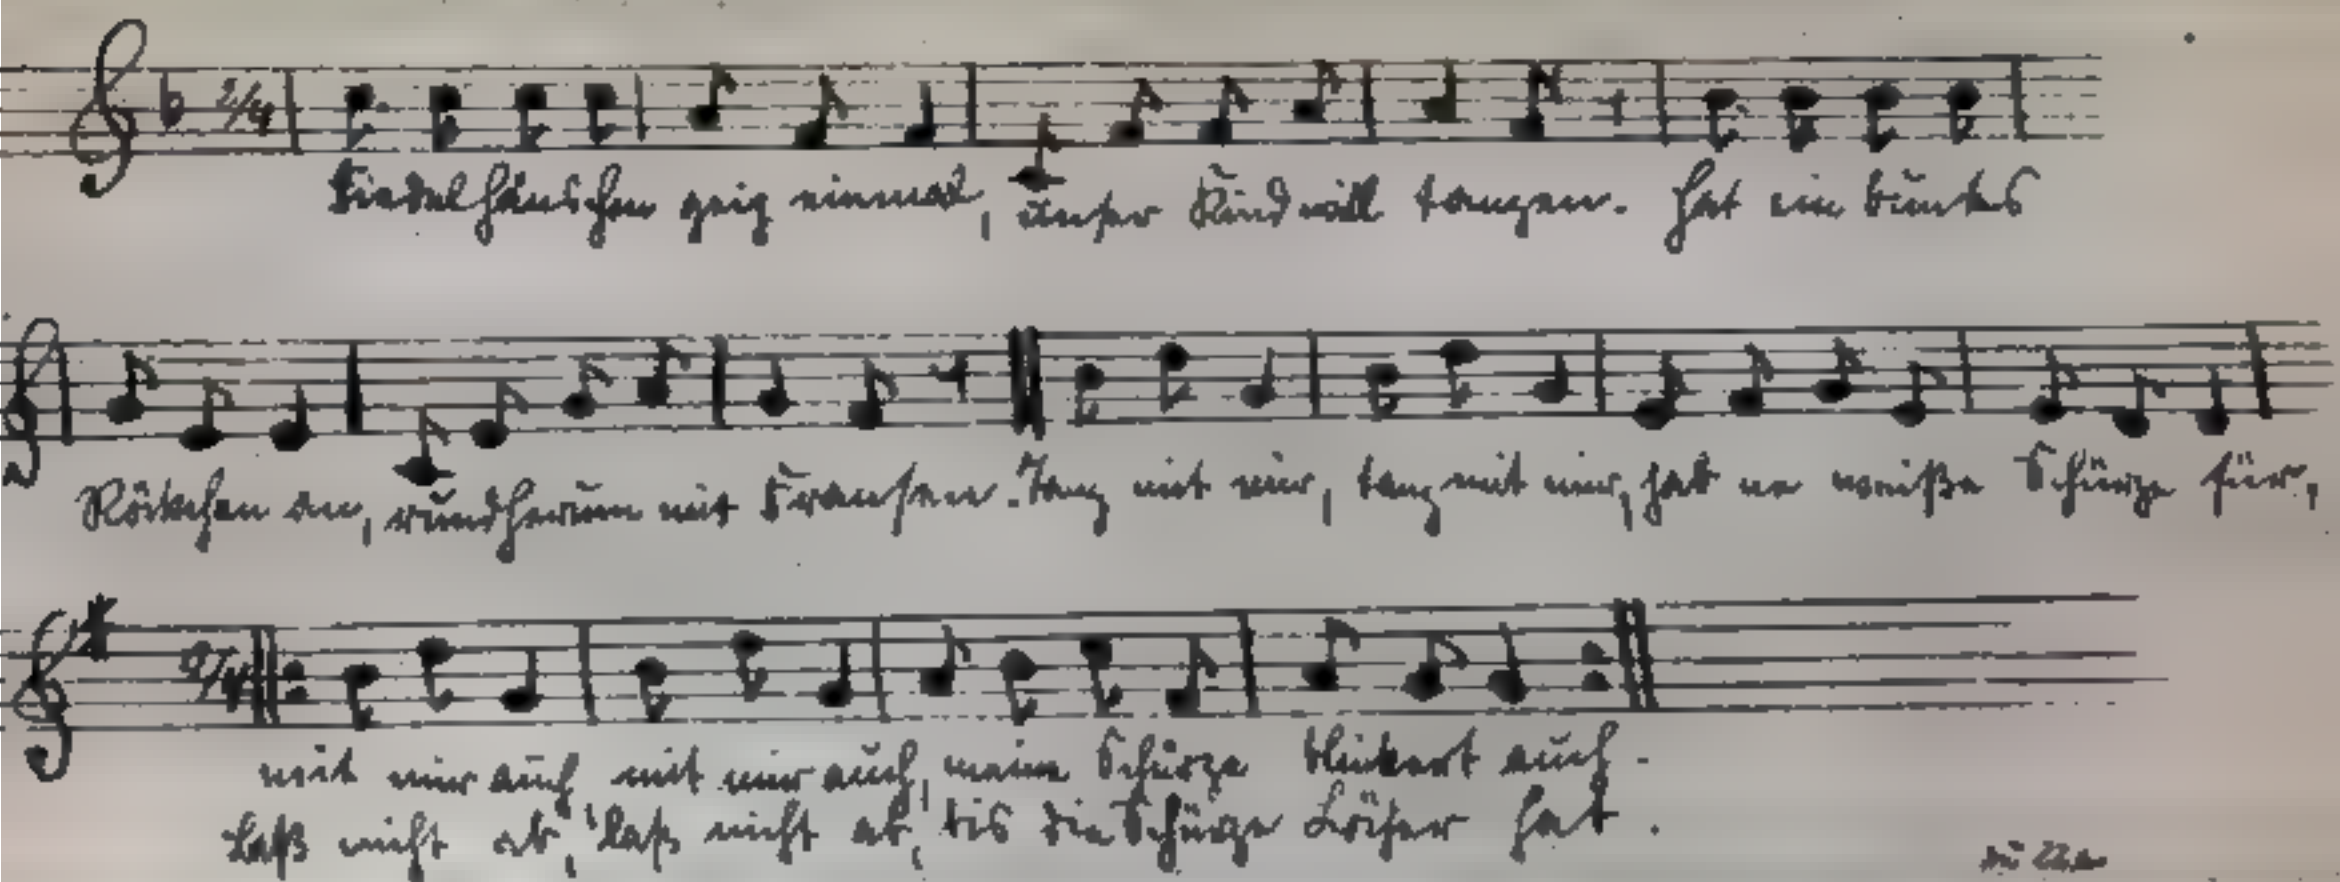 2/4
Fiedelhänschen geig einmal, unser Kind will tanzen. Hat ein buntes
Röckchen an, rundherum mit Fransen. Tanz mit mir, tanz mit mir, hab ne weiße Schürze für,
2/4
mit mir auch, mit mir auch, meine Schürze flickert auch.
Laß nicht ab, laß nicht ab, bis die Schürze Löcher hat.